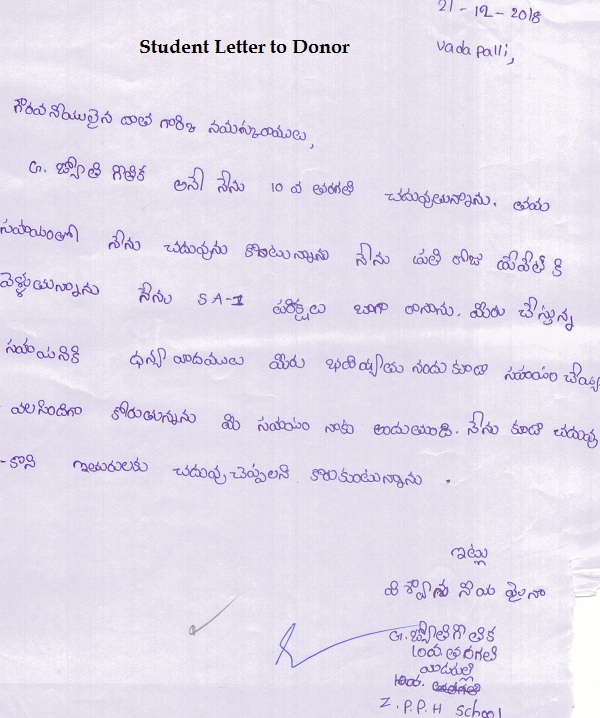 21-12-2018
Student Letter to Donor
Vadapalli,
గౌరవనీయులైన దాత గారికి నమస్కారాలు,
G. జ్యోతి గౌతిక అనే నేను 10 వ తరగతి చదువుతున్నాను. తమ
సహాయంతో నేను చదువును కొంటున్నాను నేను ప్రతి రోజు
వెళ్ళుతున్నాను నేను SA-1 పరీక్షలు బాగా రాసాను. మీరు చేస్తున్న
సహాయనికి ధన్యవాదములు మీరు భవిష్యత్తు నందు కూడా సహాయం చేయ్య
-వలసిందిగా కోరుతున్నాను మీ సహాయం నాకు అందుతుంది. నేను కూడా చదువు
-కొని ఇతరులకు చదువు చెప్పాలని కోరుకుంటున్నాను.
ఇట్లు
G. జ్యోతిగౌతిక
10వ తరగతి
Z.P.P.H School